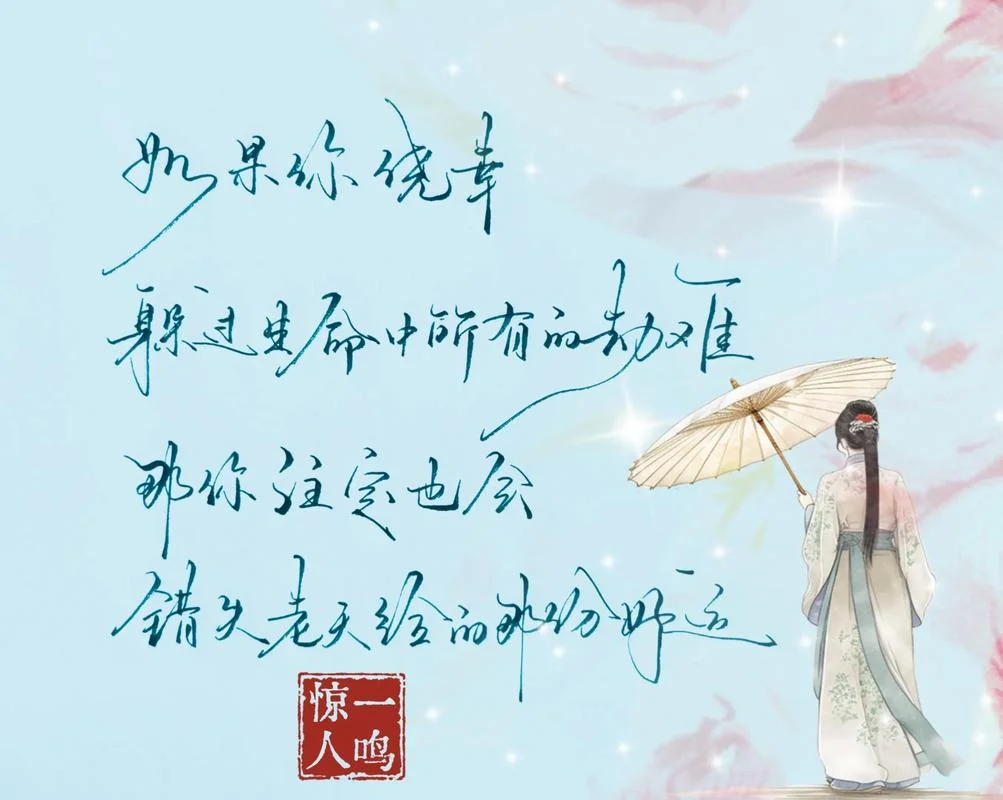 如果你侥幸
躲过生命中所有的劫难
那你注定也会
错失老天给的那份好运
一鸣惊人